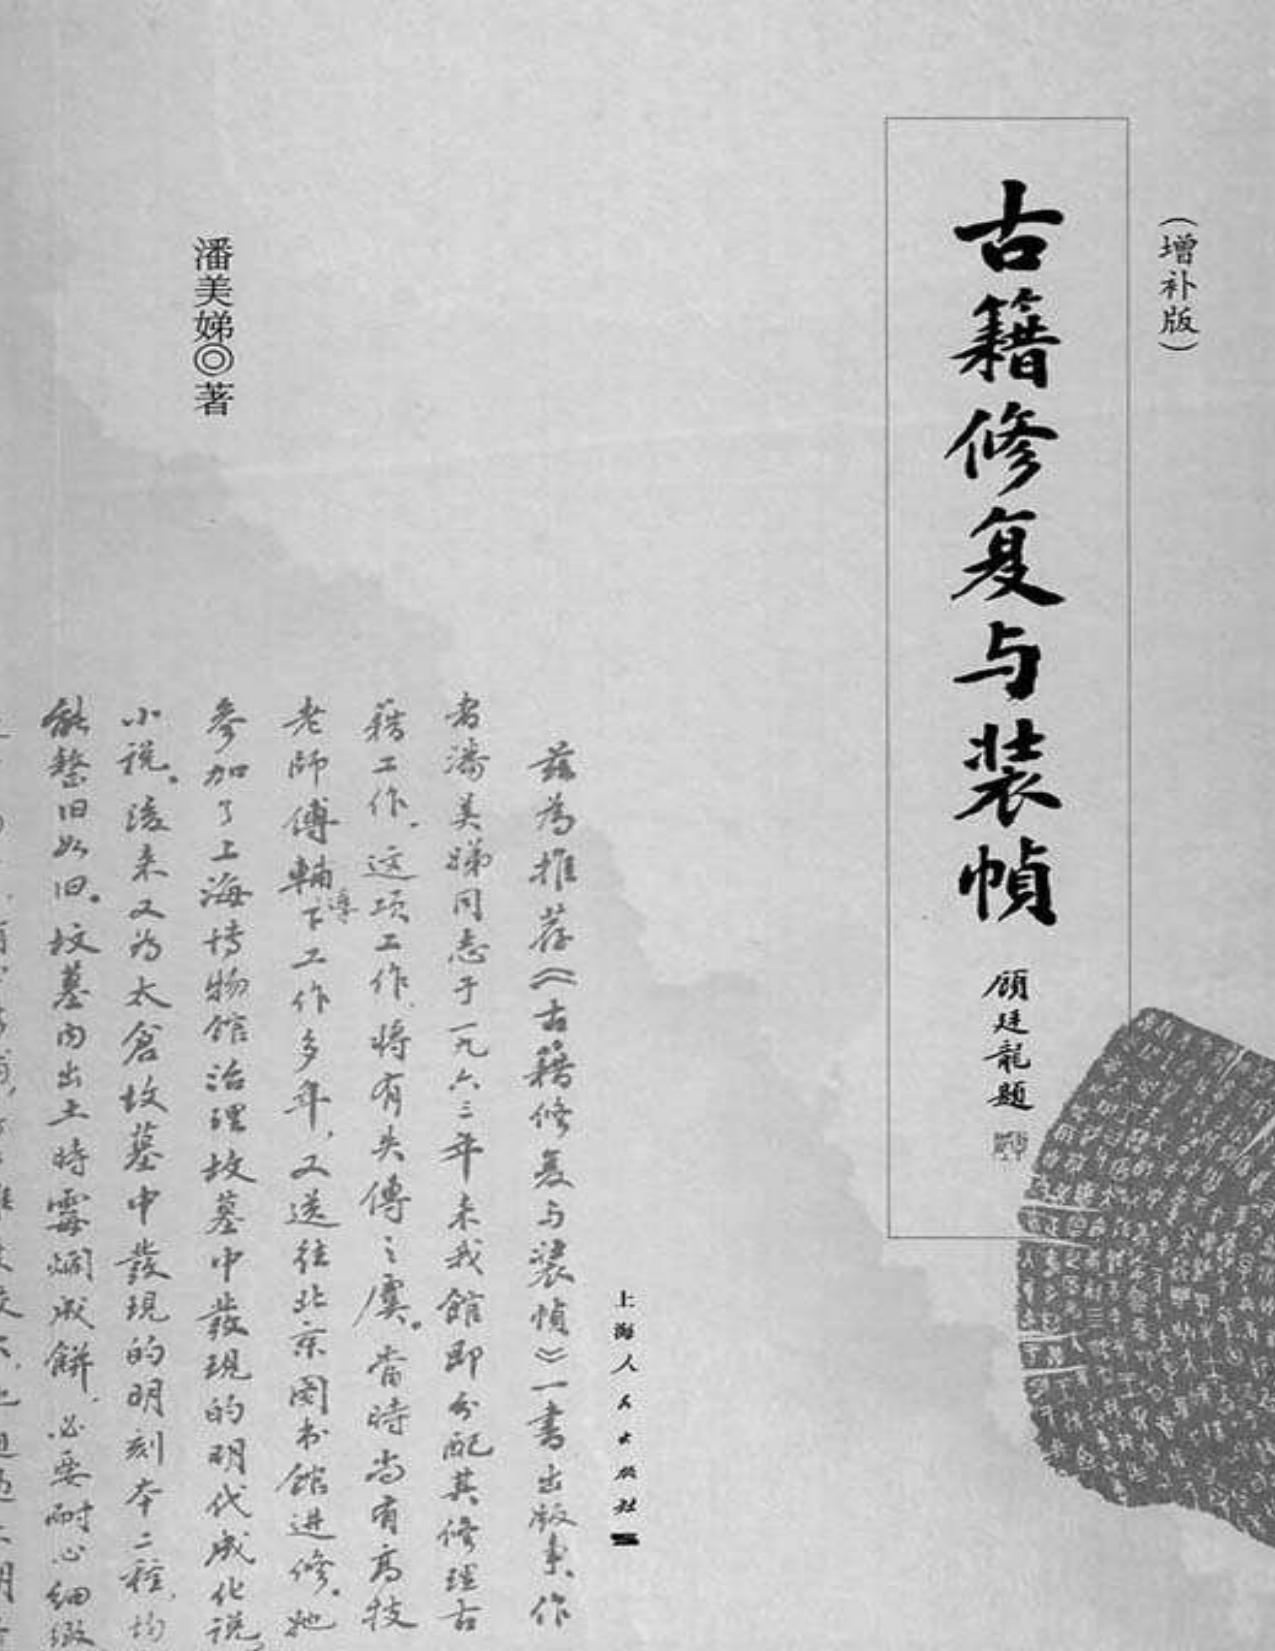 （增补版）
古籍修复与装帧
顾廷龍题
上海人民出版社
兹为推荐《古籍修复与装帧》一書出版事、作
者潘美娣同志于一九六三年来我館即分配其修理古
籍工作。这项工作，将有失傳之虞。當時尚有高技
老師傅輔導下工作多年，又送往北京图书館进修。她
参加了上海博物館治理坟墓中發現的明代成化说
小说。後来又为太倉坟墓中發現的明刻本二種，均
能整旧如旧。坟墓内出土時霉爛成餅，必要耐心细緻
潘美娣◎著